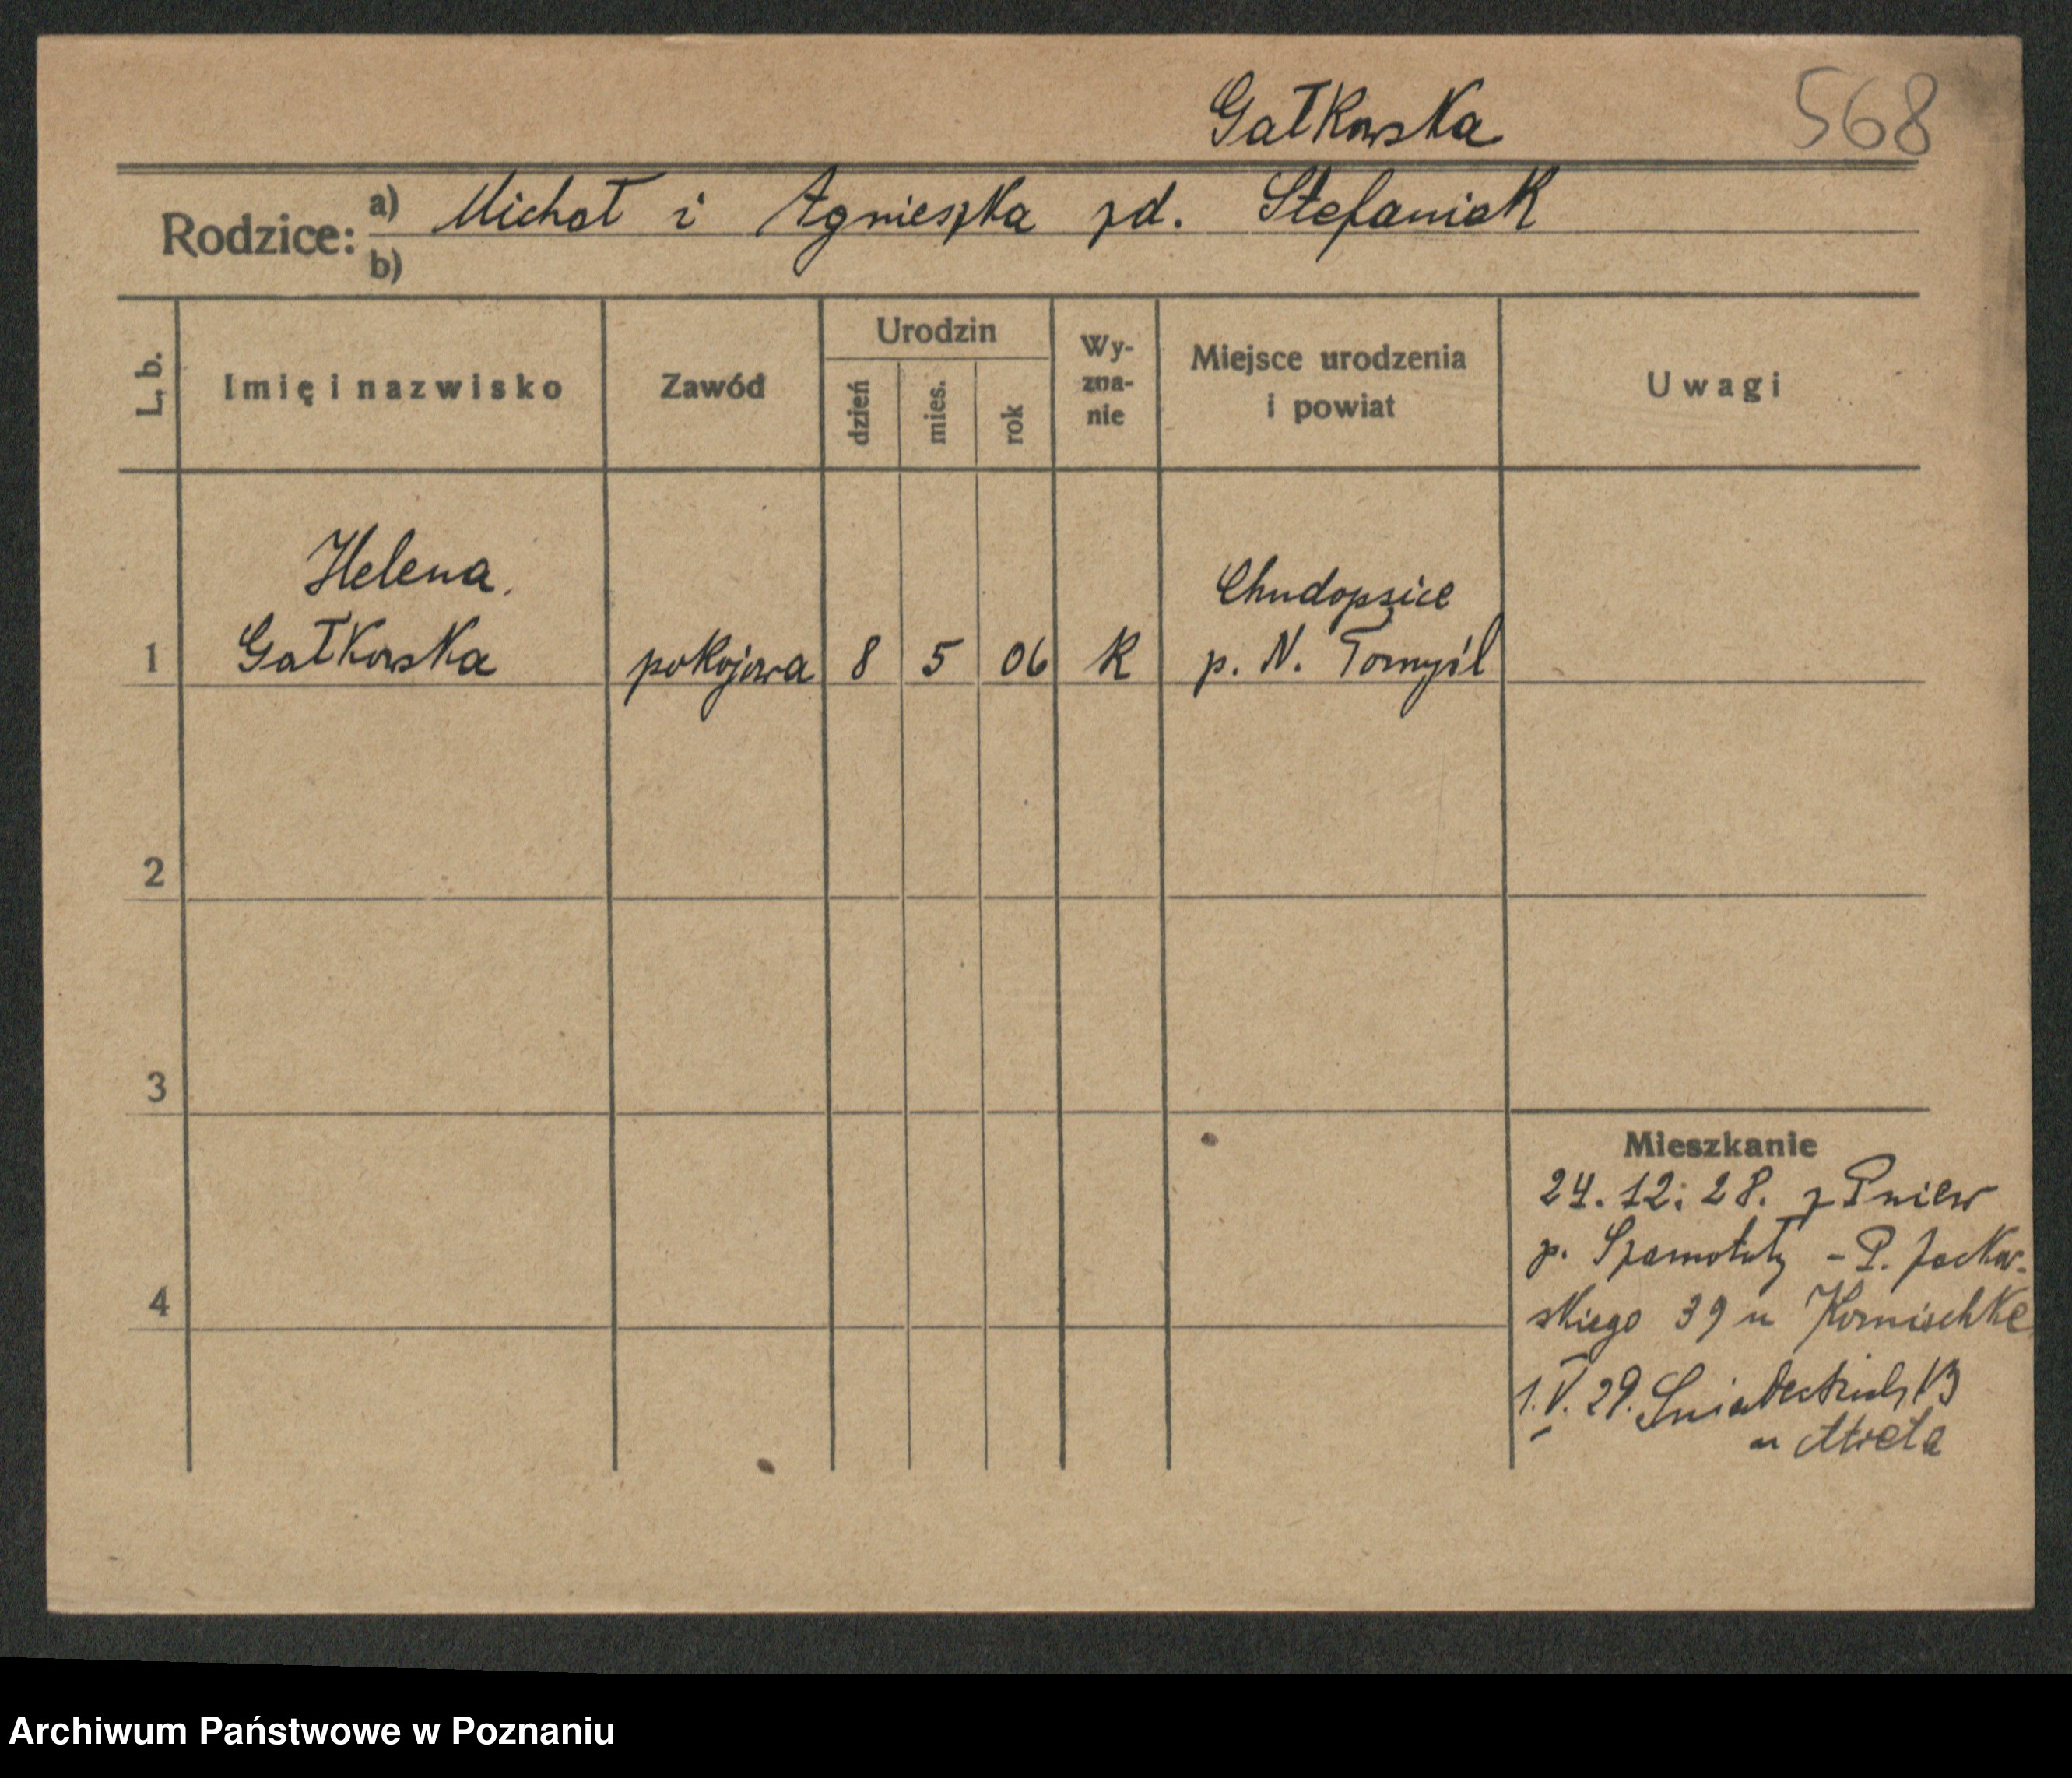 Gałkowska 568
Rodzice: a) Michał i Agnieszka zd. Stefaniak
b)
L. b. Imię i nazwisko Zawód Urodzin dzień mies. rok Wy-zna-nie Miejsce urodzenia i powiat Uwagi
Helena Chudopsice
1 Gałkowska pokojowa 8 5 06 K p. N. Tomyśl
2
3
Mieszkanie
24. 12. 28. z Pniew
p. Szamotuły - P. Jackow-
4
skiego 39 u Kornischke
1. V. 29. Sniadeckich 13
u
Archiwum Państwowe w Poznaniu